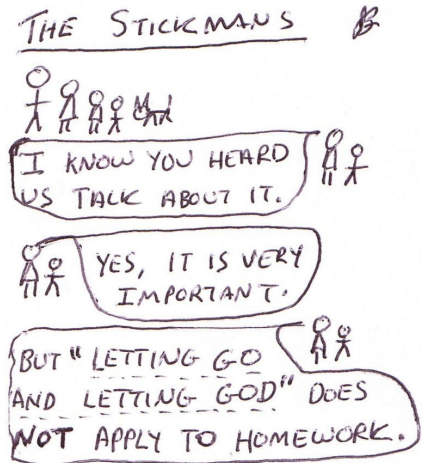 THE STICKMANS
I KNOW YOU HEARD
US TALK ABOUT IT.
YES, IT IS VERY
IMPORTANT.
BUT "LETTING GO
AND LETTING GOD" DOES
NOT APPLY TO HOMEWORK.